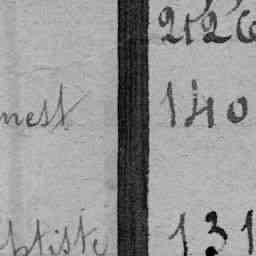 2126
nest 140
ptiste 131